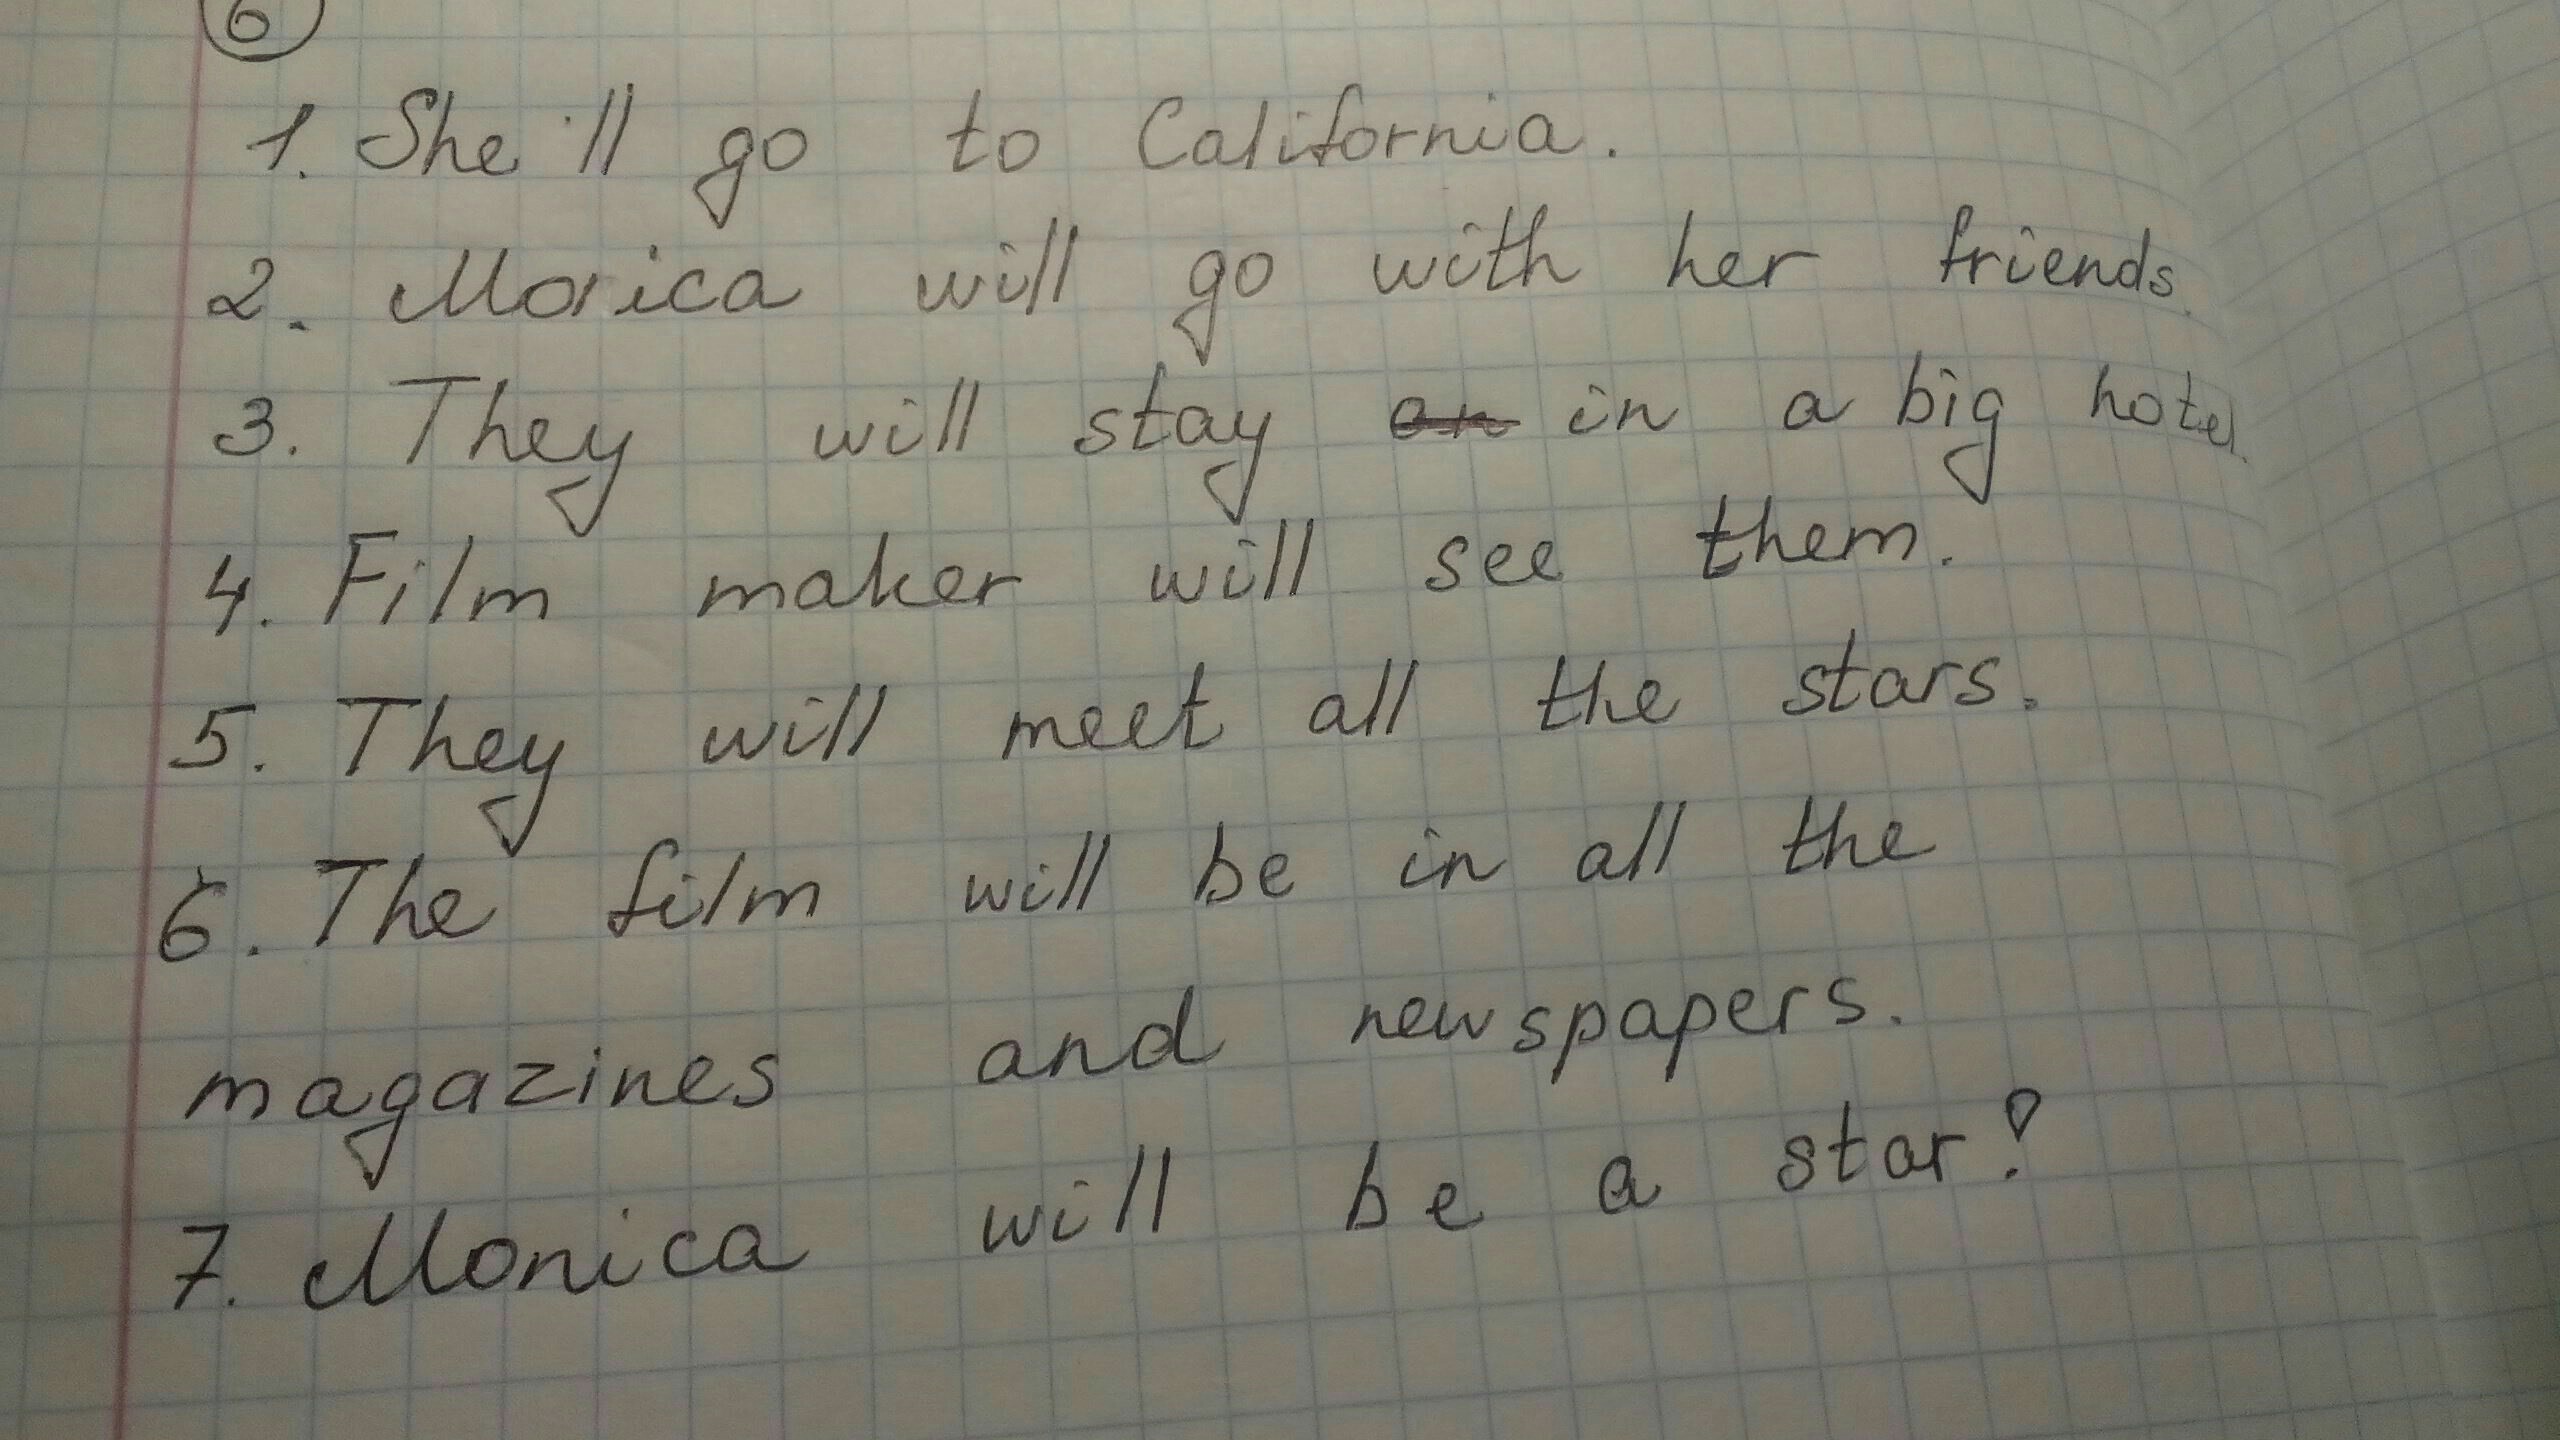 6
1. She'll go to California.
2. Monica will go with her friends.
3. They will stay on in a big hotel.
4. Film maker will see them.
5. They will meet all the stars.
6. The film will be in all the
magazines and newspapers.
7. Monica will be a star!